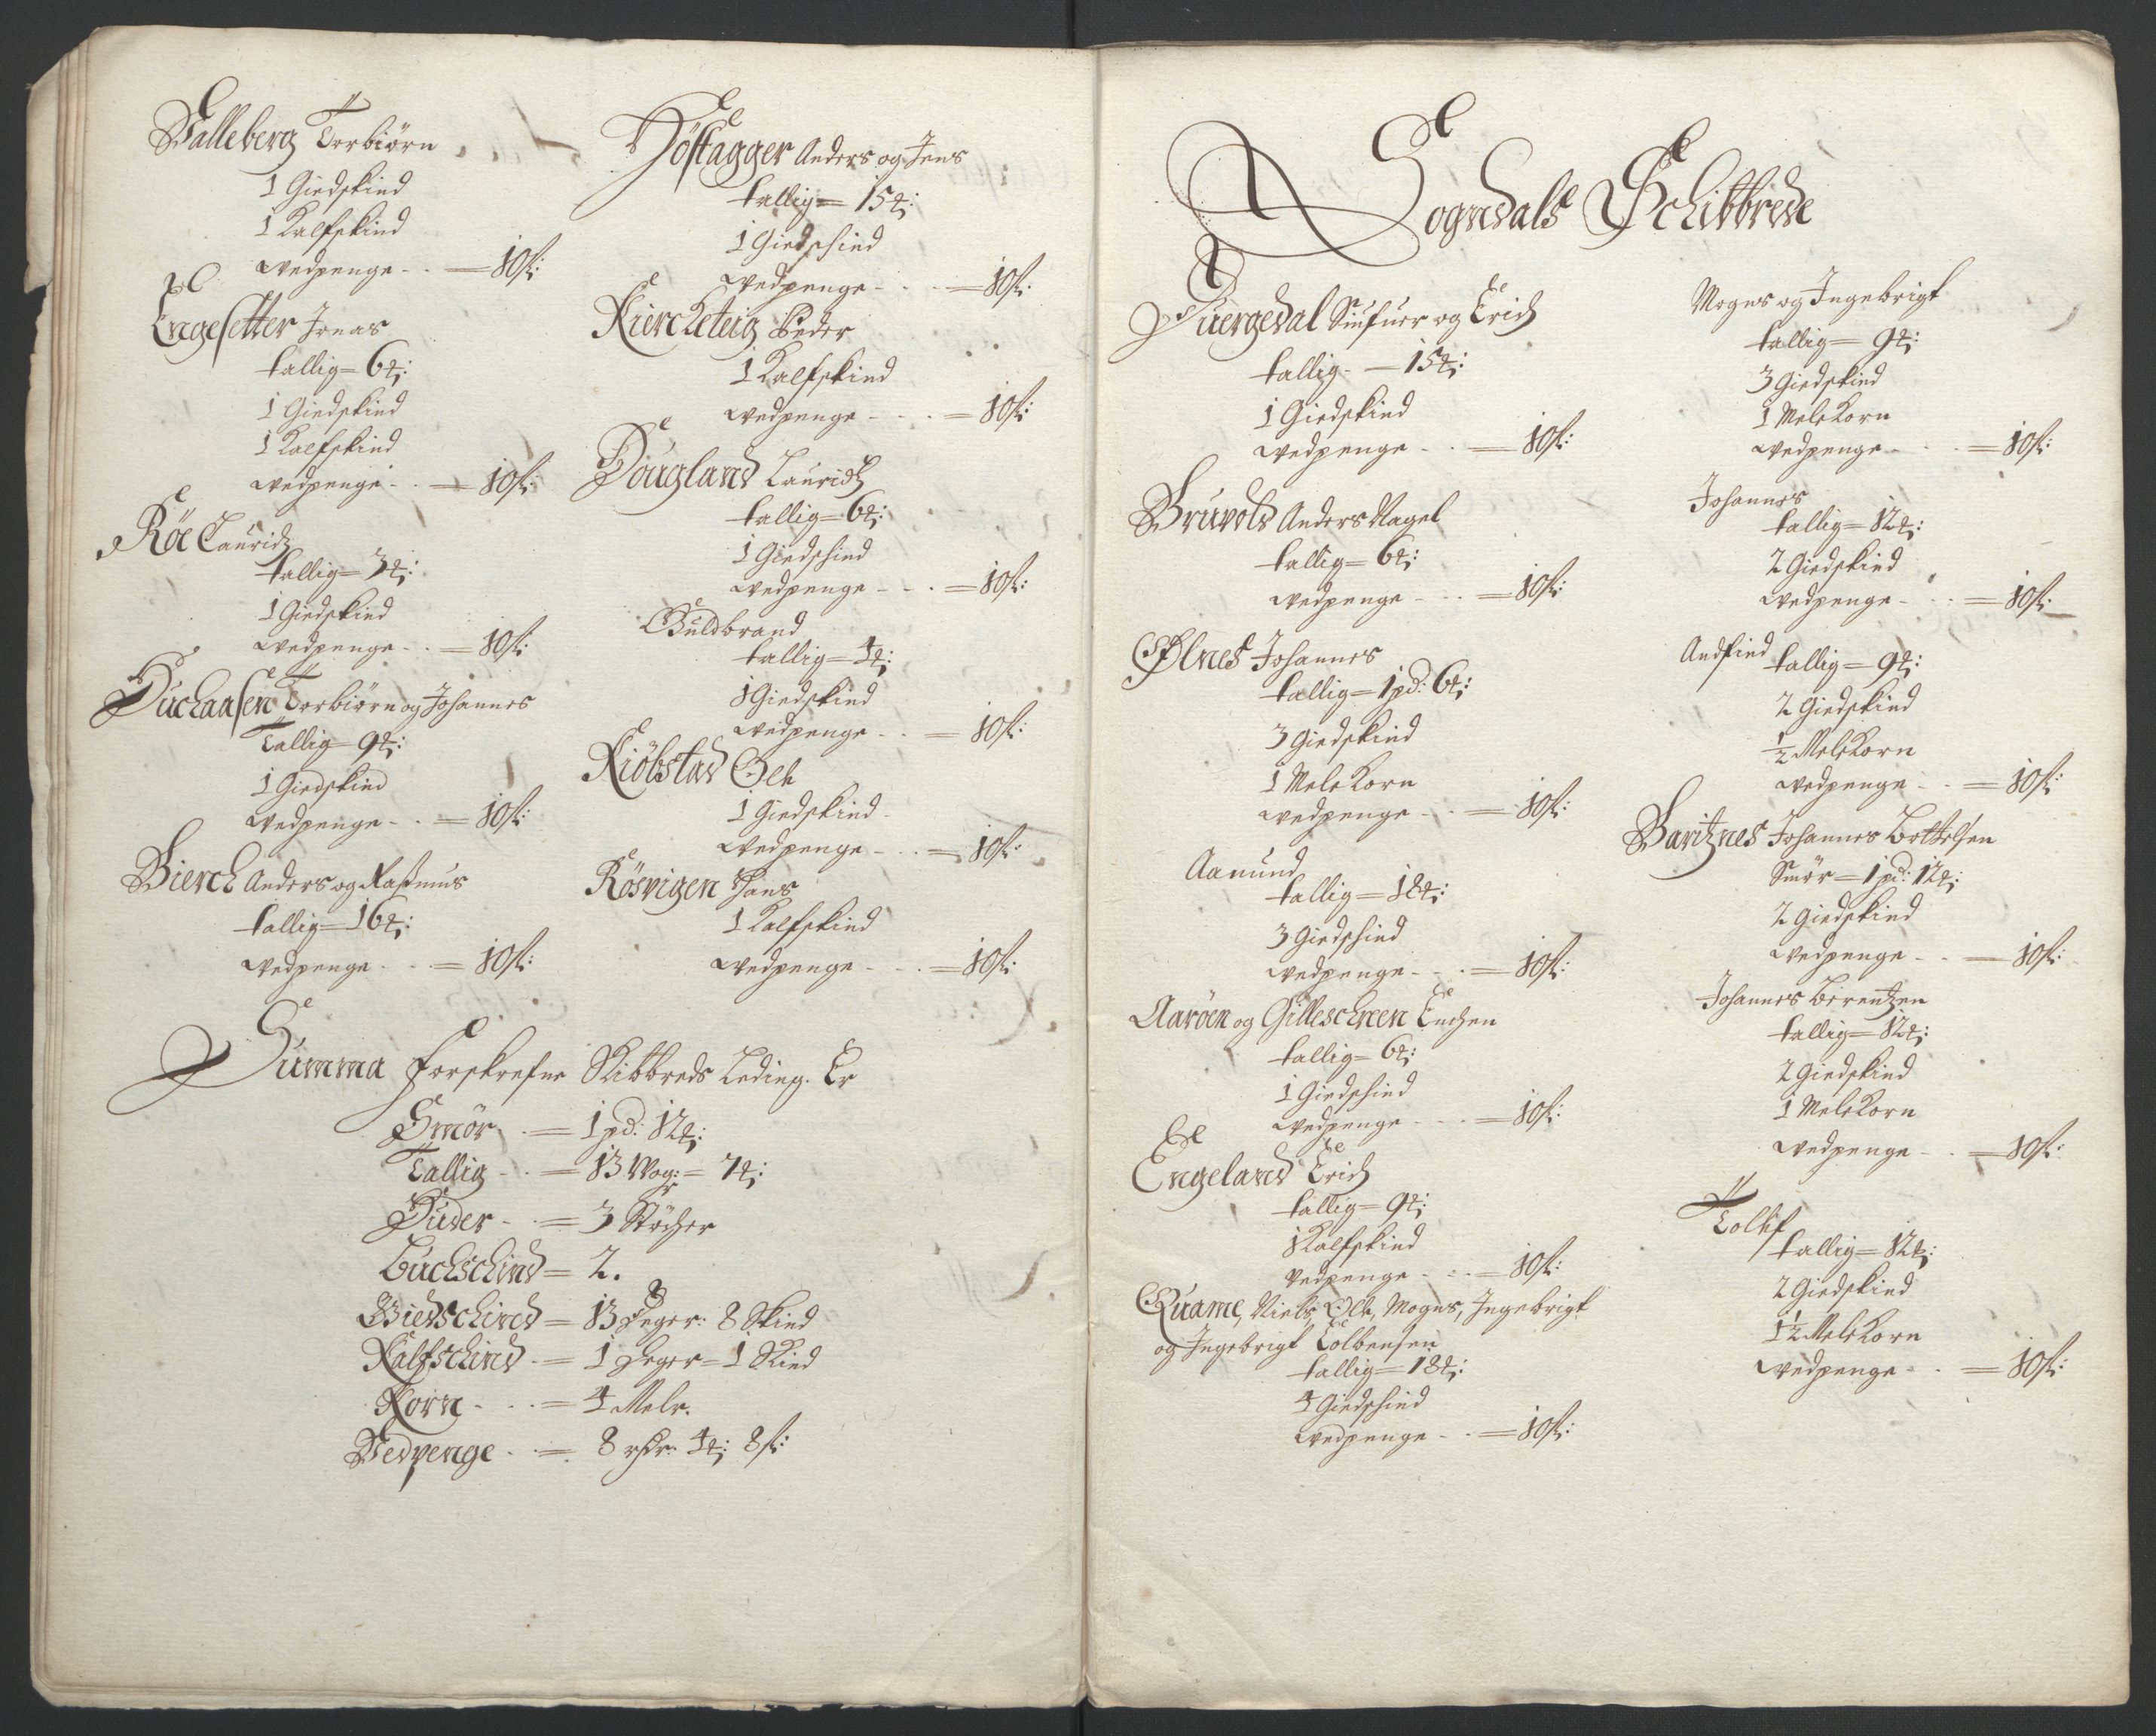 Falleberg Torbiörn
1 Giedskind
1 Kalfskind
wedpenge - - = 10 s:
Engesetter Jonas
tallig = 6 t:
1 Giedskind
1 Kalfskind
wedpenge - - = 10 s:
Röe Lauridz
tallig = 3 t:
1 Giedskind
wedpenge - - = 10 s:
Duchaasen Torbiörn og Johannes
Tallig = 9 t:
1 Giedskind
wedpenge - - = 10 s:
Bierch Anders og Rasmus
tallig = 16 t:
wedpenge - - = 10 s:
Höstagger Anders og Jens
tallig = 15 t:
1 Giedschind
wedpenge - - = 10 s:
Kiercketeig Peder
1 Kalfskind
wedpenge - - = 10 s:
Dougland Lauridz
tallig = 6 t:
1 Giedschind
wedpenge - - = 10 s:
Guldbrand
tallig = 4 t:
1 Giedskind
wedpenge - - = 10 s:
Kiöbstad Ole
1 Giedskind
wedpenge - - = 10 s:
Rösvigen Hans
1 Kalfskind
wedpenge - - = 10 s:
Summa forskrefne Skibbreds Leding. Er
Smör - = 1 pd: 12 t:
Tallig - - = 13 Wog: = 7 t:
Huder - - = 3 Störcher
Buchschind = 2.
Giedschind = 13 Deger: 8 Skind
Kalfschind - = 1 Deger = 1 Skind
Korn - - - = 4 Meler.
Vedpenge - - = 8 rdr: 4 t: 8 s:
Sogndals Schibbrede
Duergedal Siufuer og Erich
tallig - = 15 t:
1 Giedskind
wedpenge - - = 10 s:
Bruvold Anders Nagel
tallig = 6 t:
wedpenge - - = 10 s:
Ølnes Johannes
tallig = 1 pd: 6 t:
3 Giedskind
1 Mele Korn
wedpenge - - = 10 s:
Aamund
tallig = 18 t:
3 Giedschind
wedpenge - - = 10 s:
Aaröen og Gilleschreen Enchen
tallig = 6 t:
1 Giedschind
wedpenge - - = 10 s:
Engeland Erich
tallig = 9 t:
1 Kalfskind
vedpenge - - = 10 s:
Quame, Niels, Ole, Mogns, Ingebrigt
og Ingebrigt Colbensen
tallig = 18 t:
4 Giedschind
wedpenge - - = 10 s:
Mogns og Ingebrigt
tallig = 9 t:
3 Giedskind
1 Mele Korn
wedpenge - - = 10 s:
Johannes
tallig = 12 t:
2 Giedskind
wedpenge - - = 10 s:
Andfind tallig = 9 t:
2 Giedskind
1/2 Mele Korn
wedpenge - - = 10 s:
Baritznes Johannes Bottelsen
Smör = 1 pd: 12 t:
2 Giedskind
wedpenge - - = 10 s:
Johannes Berentzen
tallig = 12 t:
2 Giedskind
1 Mele Korn
wedpenge - - = 10 s:
Tollef
tallig = 12 t:
2 Giedskind
1 1/2 Mele Korn
wedpenge - - = 10 s: